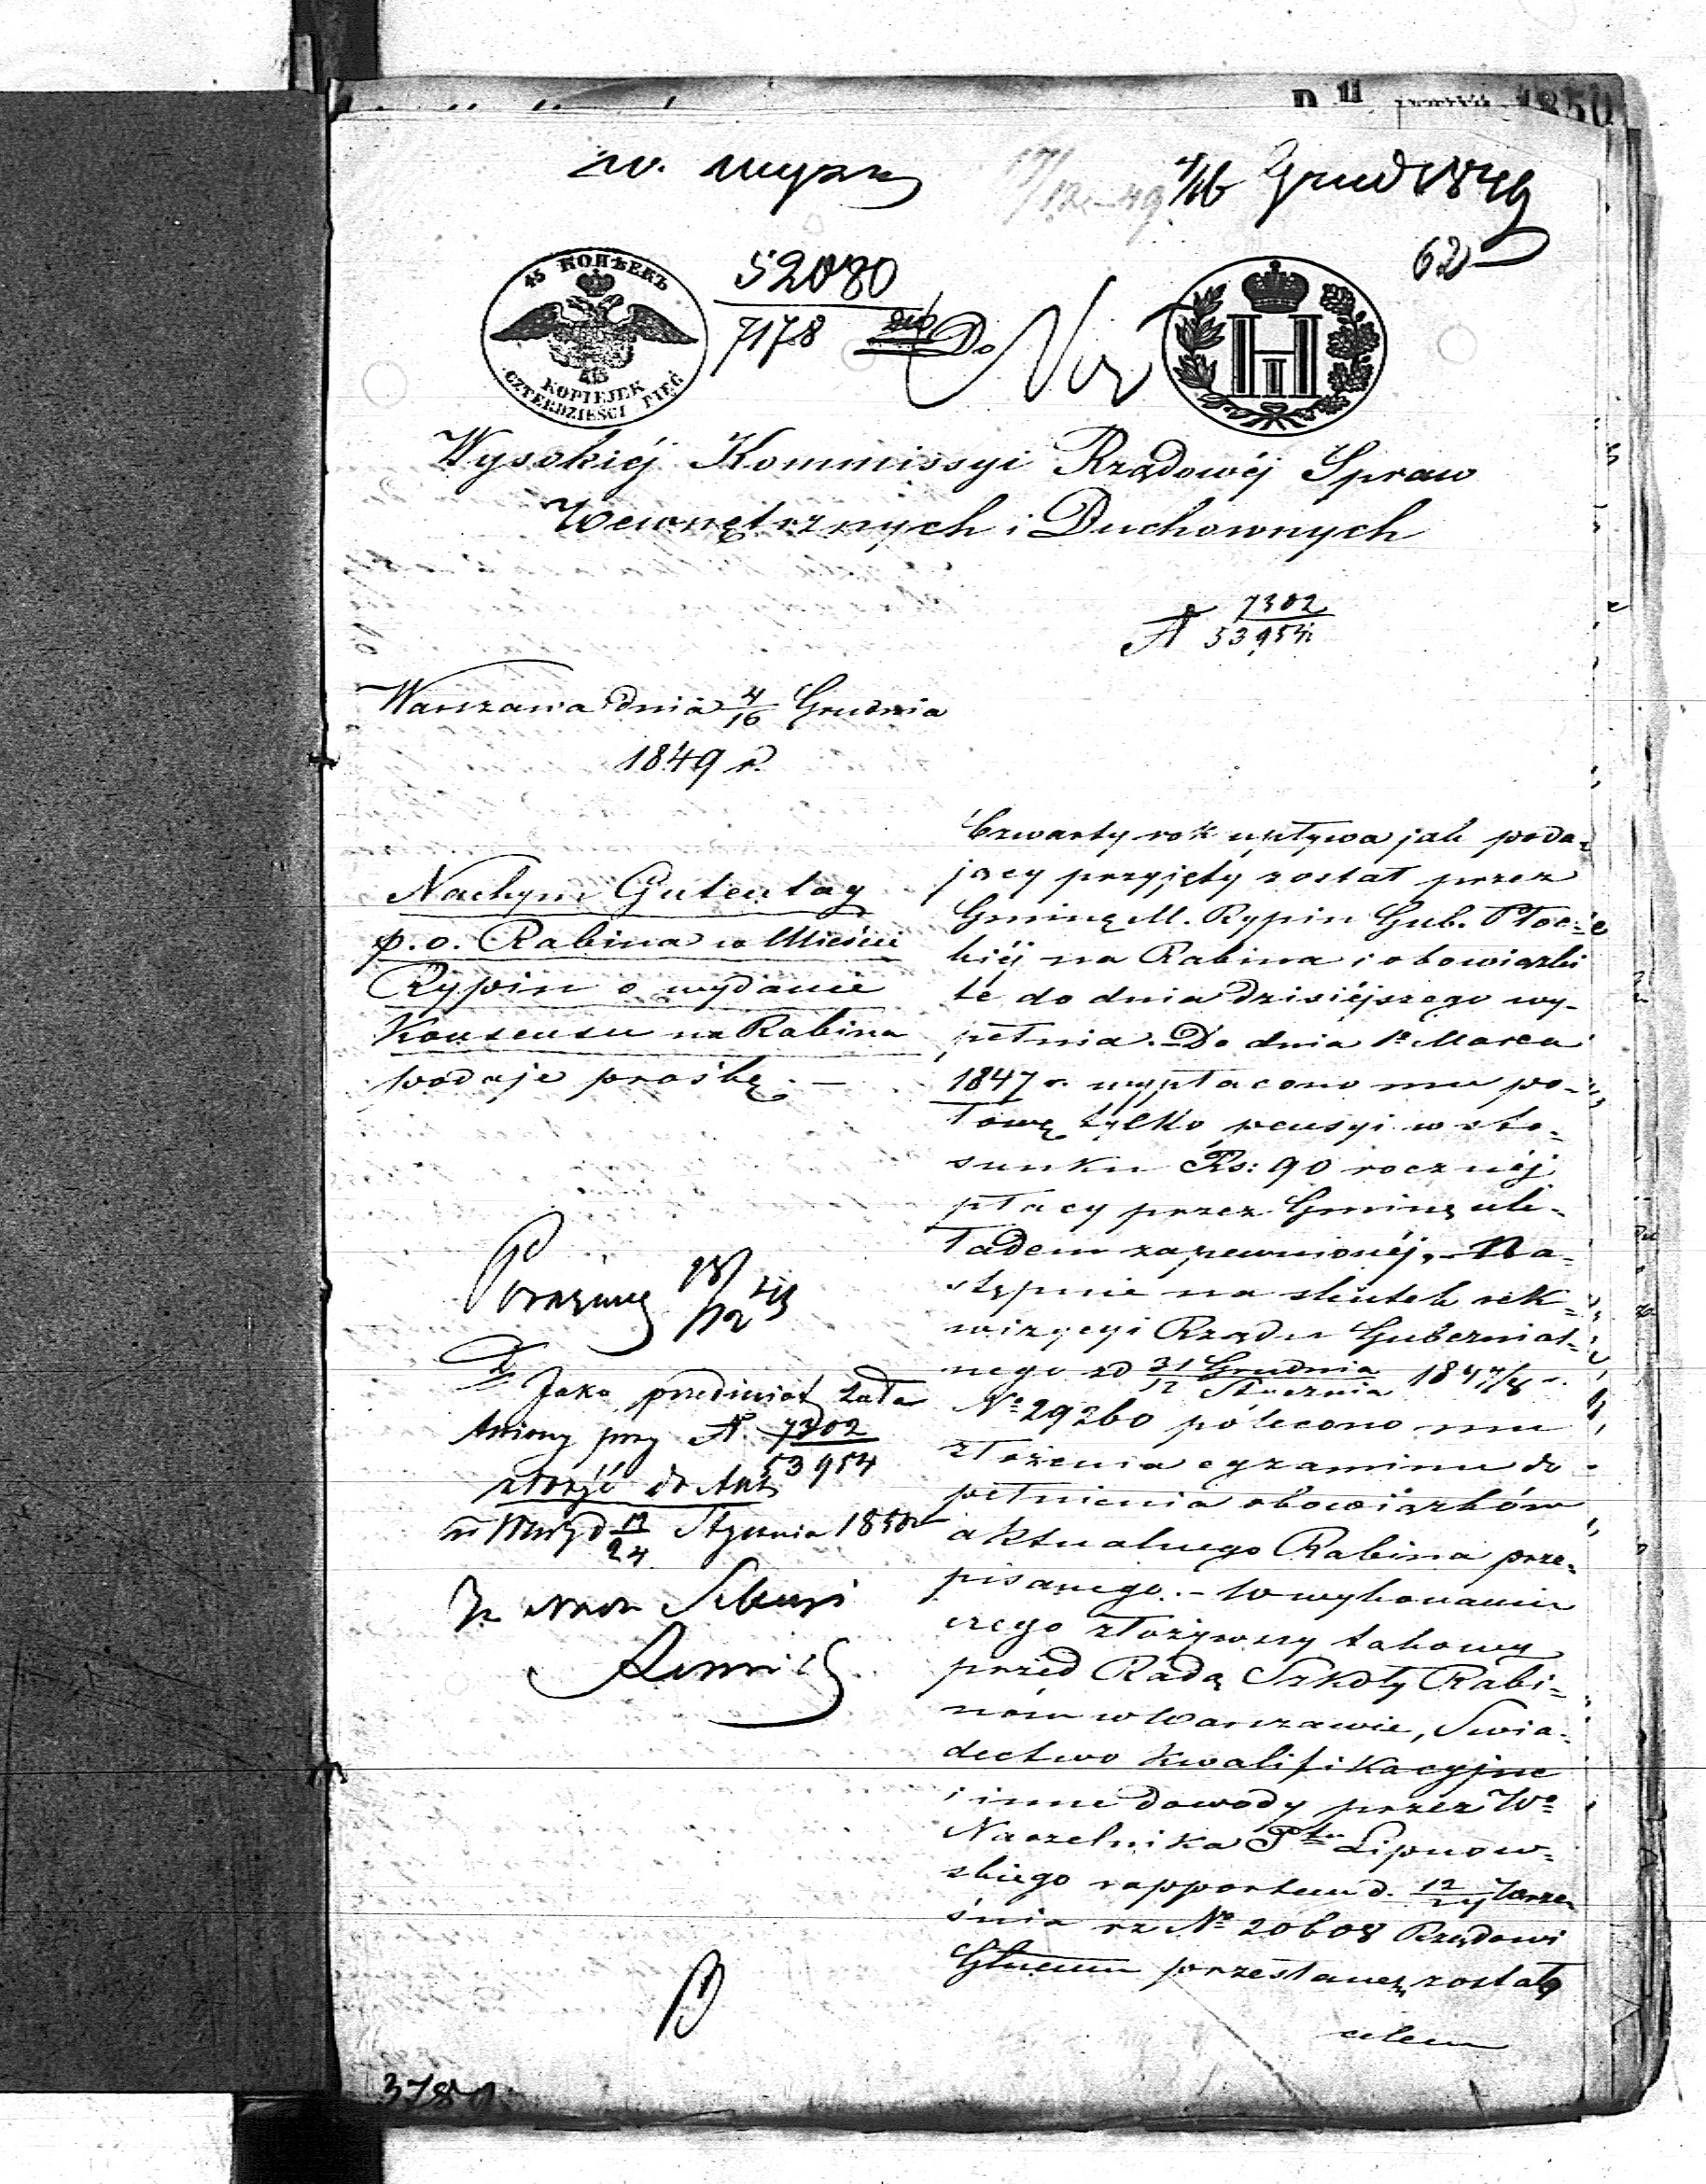 4/16 Grud 1849
62
45 КОПѢЕКЪ
45
KOPIEJEK
CZTERDZIEŚCI PIĘĆ
52080
7178
Do
H I
Wysokiéj Kommissyi Rządowéj Spraw
Wewnętrznych i Duchownych
A 7302
53954
Warszawa dnia 4/16 Grudnia
1849 r.
Nachym Gutentag
p. o. Rabina w Mieście
Rypin o wydanie
Konsensu na Rabina
podaje prośbę. —
Jako przedmiot zała
twiony przy A. 7302
53954
złożyć do Akt
Stycznia 1850
24
Czwarty rok upływa jak poda-
jący przyjęty został przez
Gminę M. Rypin Gub. Płoc-
kiéj na Rabina i obowiązki
te do dnia dzisiéjszego wy-
pełnia. — Do dnia 1o Marca
1847 r. wypłacono mu po-
łowę tylko pensyi w sto-
sunku Rs: 90 rocznéj
płacy przez Gminę ukła-
dem zapewnionéj. — Na-
stępnie na skutek rek-
wizycyi Rządu Gubernial-
nego zd 31 Grudnia / 12 Stycznia 1847/8 r.
No 29260 polecono mu
złożenia egzaminu do
pełnienia obowiązków
aktualnego Rabina prze-
pisanego. — W wykonaniu
czego złożywszy takowy
przed Radą Szkoły Rabi-
nów w Warszawie, Świa-
dectwo kwalifikacyjne
i inne dowody przez Wo
Naczelnika Ptu Lipnow-
skiego rapportem d. 12/24 Wrze
śnia rz No 20608 Rządowi
Gbernu przesłane zostały
celem
378